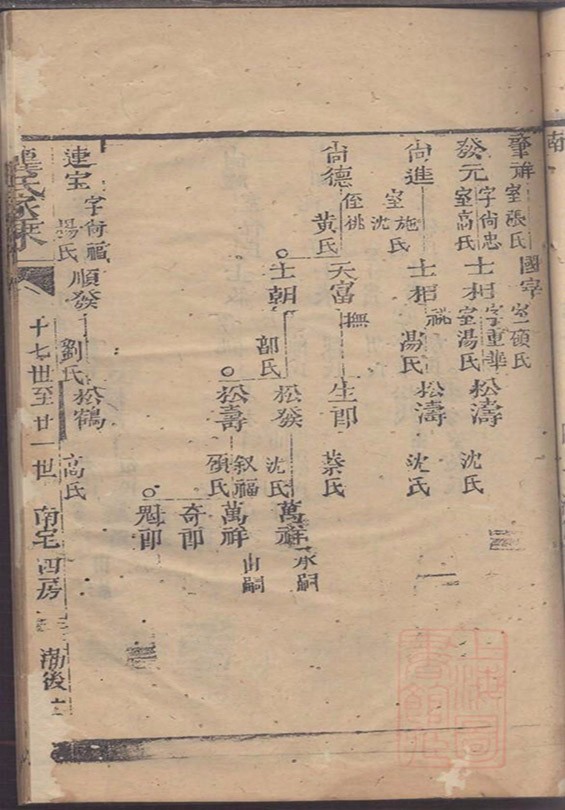 肇祥 室張氏 國字 室碩氏
發元 字尚忠 室高氏 士相 字重華 室湯氏 松濤 沈氏
尚進 室施氏 沈 士相 祧 湯氏 松濤 沈氏
尚德 侄祧 黃氏 天富 撫 生郎 蔡氏
士朝 郭氏 松發 沈氏 萬祥 承嗣
松壽 氏 叙福 萬祥 出嗣
奇郎
魁郎
連宝 字尚福 楊氏 順發 劉氏 松鶴 高氏
十七世至廿一世 南宅四房 渤後
南